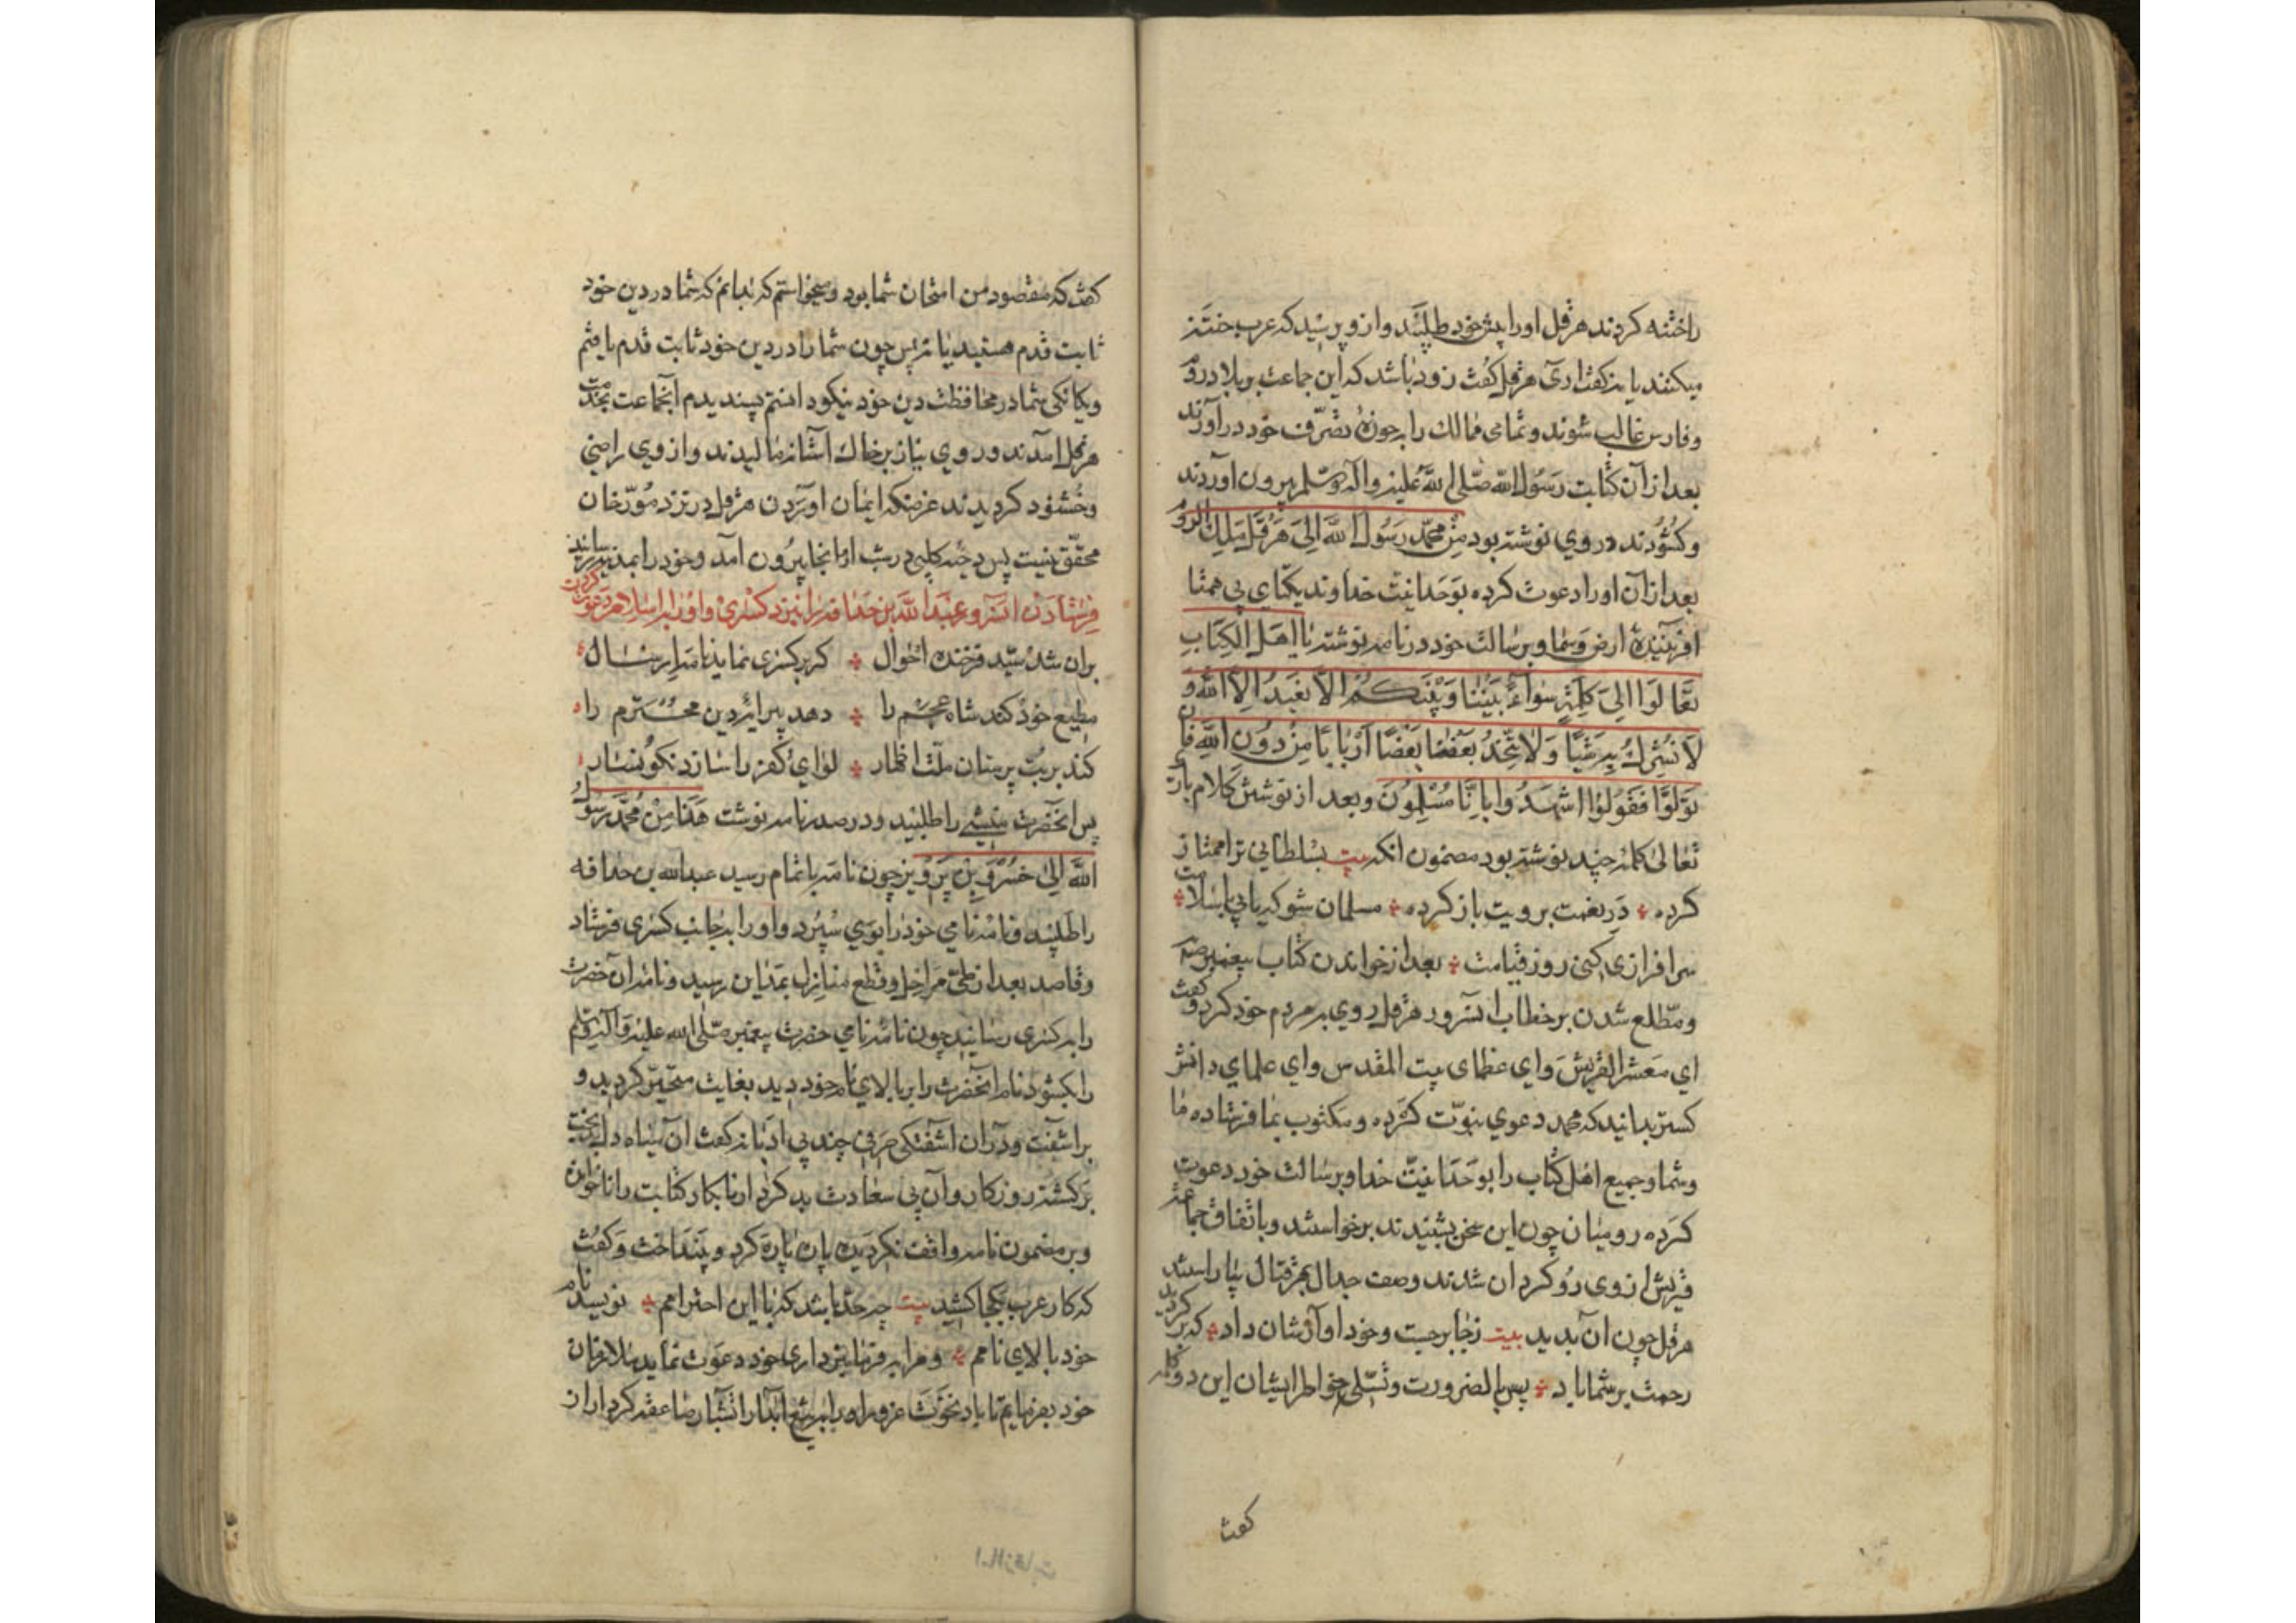 راختنه کردند هرقل اورا پیش خود طلبید وازو پرسید که عرب ختنه
میکنند یا نه گفت اری هرقل گفت زود باشد که این جماعت بر بلاد روم
وفارس غالب شوند وتمامی ممالک را بحوزهٔ تصرّف خود در آورند
بعد ازان کتابت رسول الله صلّی الله علیه وآله وسلم بیرون اوردند
وکشودند در وی نوشته بود مِن محمّد رسول الله الی هرقل ملک الروم
بعد ازان اورا دعوت کرده بوحدانیت خداوند یکتای بی همتا
افریننده ارض وسما وبرسالت خود در نامه نوشته یا اهل الکتاب
تعالوا الی کلمة سواء بیننا وبینکم الّا نعبد الّا الله و
لا نشرک به شیئا ولا یتّخذ بعضنا بعضا اربابا من دون الله فان
تولّوا فقولوا اشهدوا بانّا مسلمون وبعد از نوشتن کلام باری
تعالی کلمهٔ چند نوشته بود مضمون انکه بیت بسلطانی ترا ممتاز
کرده در نعمت برویت باز کرده مسلمان شو که یابی باسلامت
سرافرازی کنی روز قیامت بعد از خواندن کتاب پیغمبر
ومطّلع شدن بر خطاب انسرور هرقل روی بمردم خود کرد وگفت
ای معشر القریش وای عظمای بیت المقدس وای علمای دانش
کستر بدانید که محمد دعوی نبوّت کرده ومکتوب بما فرستاده ما
وشما وجمیع اهل کتاب را بوحدانیّت خدا وبرسالت خود دعوت
کرده رومیان چون این سخن بشنیدند برخواستند وباتفاق جماعه
قریش از وی رو کردان شدند وصف جدال بهر قتال بیاراستند
هرقل چون ان بدید بیت زجا برجست وخود اوازشان داد که بر کردید
رحمت بر شما باد پس بالضرورت وتسلّی خواطر ایشان این دو کلمه
گفت
گفت که مقصود من امتحان شما بود ومیخواستم که بدانم که شما در دین خود
ثابت قدم هستید یا نه پس چون شما را در دین خود ثابت قدم یافتم
ویکانکی شما در محافظت دین خود نیکو دانستم پسندیدم انجماعت بخدمت
هرقل امدند وروی نیاز بر خاک آستانه مالیدند واز وی راضی
وخشنود کردیدند غرضکه ایمان اوردن هرقل در نزد مورّخان
محقّق نیست پس دحیه کلبی در شب از انجا بیرون آمد وخود را بمدینه رسانید
فرستادن انسرور عبد الله بن حذافه را نزد کسری واورا باسلام دعوت کردن
بران شد سیّد فرخنده احوال که بر کسری نماید نامه ارسال
مطیع خود کند شاه عجم را دهد پیرایه دین محترم را
کند بر بت پرستان ملّت اظهار لوای کفر را سازد نکونسار
پس انحضرت منشی را طلبید ودر صدر نامه نوشت هذا من محمّد رسول
الله الی خسرو بن پرویز چون نامه باتمام رسید عبدالله بن حذافه
را طلبید ونامهٔ نامی خود را بوی سپرد واورا بجانب کسری فرستاد
وقاصد بعد از طیّ مراحل وقطع منازل بمداین رسید ونامه ان حضرت
را بکسری رسانید چون نامه نامی حضرت پیغمبر صلّی الله علیه وآله وسلم
را بکشود نام انحضرت را بر بالای نام خود دید بغایت متحیّر کردید و
براشفت ودران اشفتکی حرفی چند بی ادبانه گفت ان سیاه دل بخت
برکشته روزکار وآن بی سعادت بد کردار نابکار کتابت را ناخوانده
وبر مضمون نامه واقف نکردیده پاره پاره کرد وبینداخت وگفت
که کار عرب بکجا کشید بیت چه حد باشد که با این احترامم نویسد نام
خود بالای نامم ومرا بفرمانبرداری خود دعوت نماید بملازمان
خود بفرمایم تا باد نخوت غرور اورا